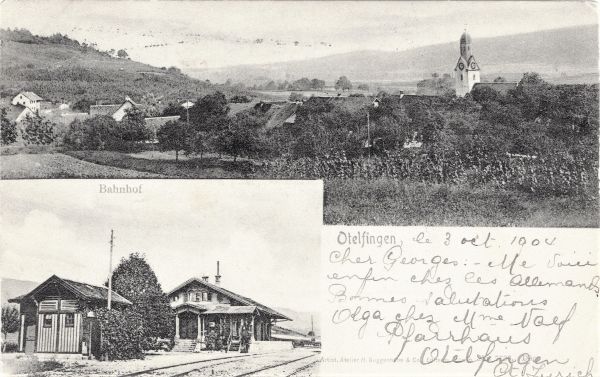 Bahnhof
Otelfingen, le 3 oct. 1904
Cher Georges: - Me voici
enfin chez les Allemands
Bonnes salutations
Olga chez Mme Naef
Pfarrhaus
Otelfingen
Ct. Zurich
Artist. Atelier H. Guggenheim & Co.